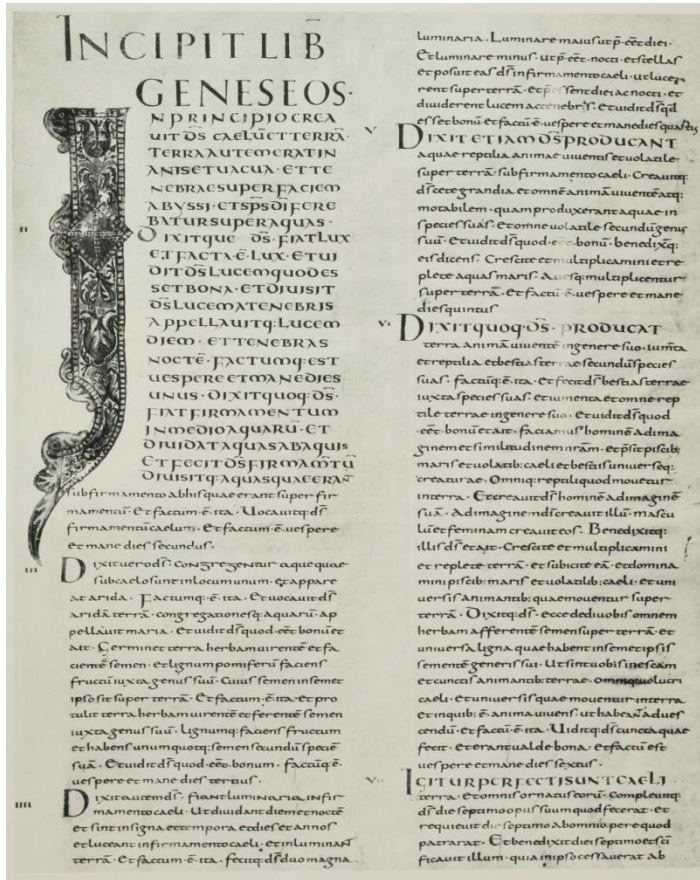 INCIPIT LIB̄
GENESEOS·
IN PRINCIPIO CREA
UIT D̄S CAELŪ ET TERRĀ·
TERRA AUTEM ERAT IN
ANIS ET UACUA· ET TE
NEBRAE SUPER FACIEM
ABYSSI· ET SP̄S D̄I FERE
BATUR SUPER AQUAS·
II
DIXITQUE D̄S· FIAT LUX
ET FACTA Ē LUX· ET UI
DIT D̄S LUCEM QUOD ES
SET BONA· ET DIUISIT
D̄S LUCEM A TENEBRIS
APPELLAUITQ; LUCEM
DIEM· ET TENEBRAS
NOCTĒ· FACTUMQ; EST
UESPERE ET MANE DIES
UNUS· DIXIT QUOQ; D̄S·
FIAT FIRMAMENTUM
IN MEDIO AQUARŪ· ET
DIUIDAT AQUAS AB AQUIS
ET FECIT D̄S FIRMAM̄TŪ
DIUISITQ; AQUAS QUAE ERAN̄T
sub firmamento ab his quae erant super fir
mamentū· Et factum·ē·ita· Uocauitq; d̄s
firmamentū caelum· Et factum·ē·uespere
et mane dies secundus·
III
Dixit uero d̄s· Congregentur aquae quae
sub caelo sunt in locum unum· et appare
at arida· Factumq;·ē·ita· Et uocauit d̄s
aridā terrā· congregationesq; aquarū· ap
pellauit maria· Et uidit d̄s quod·eēt·bonū et
ait· Germinet terra herbam uirentē et fa
cientē semen· et lignum pomiferū faciens
fructū iuxta genus suū· Cuius semen in semet
ipso sit super terrā· Et factum·ē·ita· et pro
tulit terra herbam uirentē et ferentē semen
iuxta genus suū· lignumq; faciens fructum
et habens unumquotq; semen secundū speciē
suā· Et uidit d̄s quod·eēt·bonum· factūq;·ē·
uespere et mane dies tertius·
IIII
Dixit autem d̄s· fiant luminaria in fir
mamento caeli· Ut diuidant diem et noctē
et sint in signa et tempora et dies et annos
et luceant in firmamento caeli· et inluminant
terrā· Et factum·ē·ita· fecitq; d̄s duo magna
luminaria· Luminare maius ut p̄·eēt·diei·
Et luminare minus· ut p̄·eēt·nocti· et stellas
et posuit eas d̄s in firmamento caeli· ut luce
rent super terrā· et p̄essent diei ac nocti· et
diuiderent lucem ac tenebris· Et uidit d̄s qd̄
esset bonū et factū·ē·uespere et mane dies quartus
V
DIXIT ETIAM D̄S PRODUCANT
aquae reptilia animae uiuentis et uolatile·
super terrā· sub firmamento caeli· Creauitq;
d̄s cete grandia et omnē animā uiuentē atq;
motabilem· quam produxerant aquae in
species suas· Et omne uolatile secundū genus
suū· Et uidit d̄s quod·eēt·bonū· benedixitq;
eis dicens· Crescite et multiplicamini et re
plete aquas maris· Auesq; multiplicentur
super terrā· Et factū·ē·uespere et mane
dies quintus
VI
DIXIT QUOQ; D̄S· PRODUCAT
terra animā uiuentē in genere suo· iumta
et reptilia et bestias terrae secundū species
suas· factūq;·ē·ita· Et fecit d̄s bestias terrae
iuxta species suas· et iumenta et omne rep
tile terrae in genere suo· Et uidit d̄s quod
·eēt·bonū et ait· faciamus hominē ad ima
ginem et similitudinem nr̄am· et p̄sit piscib;
maris et uolatib; caeli et bestiis uniuerseq;
creaturae· Omniq; reptili quod mouetur
in terra· Et creauit d̄s hominē ad imaginē
suā· Ad imaginem d̄i creauit illū· mascu
lū et feminam creauit eos· Benedixitq;
illis d̄s et ait· Crescite et multiplicamini
et replete terrā· et subicite eā· et domina
mini piscib; maris et uolatilib; caeli· et uni
uersis animantib; quae mouentur super
terrā· Dixitq; d̄s· ecce dedi uobis omnem
herbam afferentē semen super terrā· et
uniuersa ligna quae habent in semet ipsis
sementē generis sui· Ut sint uobis in escam
et cunctis animantib; terrae· Omniq; uolucri
caeli· et uniuersis quae mouentur in terra
et in quib;·ē·anima uiuens· ut habeant ad ues
cendū· Et factū·ē·ita· Uiditq; d̄s cuncta quae
fecit· et erant ualde bona· et factū est
uespere et mane dies sextus·
VII
IGITUR PERFECTI SUNT CAELI
terra· Et omnis ornatus eorū· Compleuitq;
d̄s die septimo opus suum quod fecerat· et
requieuit die septimo ab omni opere quod
patrarat· Et benedixit diei septimo et sc̄i
ficauit illum· quia in ipso cessauerat ab